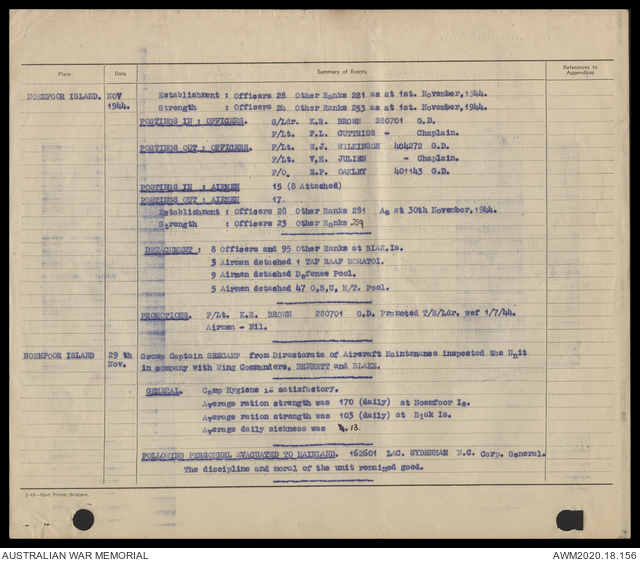 Place Date Summary of Events References to Appendices
NOEMFOOR ISLAND. NOV 1944. Establishment : Officers 28 Other Ranks 281 as at 1st. November, 1944.
Strength : Officers 24 Other Ranks 253 as at 1st. November, 1944.
POSTINGS IN : OFFICERS. S/Ldr. K.R. BROWN 280701 G.D.
F/Lt. F.L. CUTTRISS - Chaplain.
POSTINGS OUT : OFFICERS. F/Lt. W.J. WILKINSON 404272 G.D.
F/Lt. V.H. JULIEN - Chaplain.
F/O. E.P. OAKLEY 401143 G.D.
POSTINGS IN : AIRMEN 15 (8 Attached)
POSTINGS OUT : AIRMEN 17.
Establishment : Officers 28 Other Ranks 281 As at 30th November, 1944.
Strength : Officers 23 Other Ranks
DETACHMENT : 8 Officers and 95 Other Ranks at BIAK.Is.
3 Airmen detached 1 TAF RAAF NORATOI.
9 Airmen detached Defence Pool.
5 Airmen detached 47 O.B.U. M/T. Pool.
PROMOTIONS. F/Lt. K.R. BROWN 280701 G.D. Promoted T/S/Ldr. wef 1/7/44.
Airmen - Nil.
NOEMFOOR ISLAND 29 th Nov. Group Captain SEEKAMP from Directorate of Aircraft Maintenance inspected the Unit
in company with Wing Commanders, BENNETT and BLAKE.
GENERAL. Camp Hygiene is satisfactory.
Average ration strength was 170 (daily) at Noemfoor Is.
Average ration strength was 103 (daily) at Biak Is.
Average daily sickness was 13.
FOLLOWING PERSONNEL EVACUATED TO MAINLAND. 162601 LAC. SYDENHAM N.C. Carp. General.
The discipline and moral of the unit remained good.
2-43—Govt. Printer, Brisbane.
AUSTRALIAN WAR MEMORIAL AWM2020.18.156